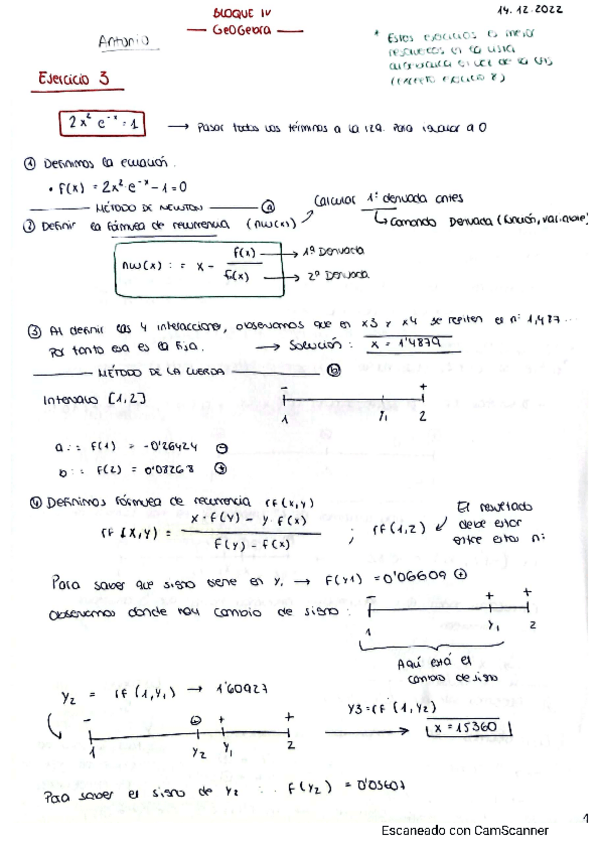 BLOQUE IV
GeoGebra
14.12.2022
Antonio
* Estos ejercicios es mejor
resolverlos en la vista
Ejercicio 3
2x² e⁻ˣ = 1 → Pasar todos los términos a la izq. para igualar a 0
① Definimos la ecuación.
• f(x) = 2x²·e⁻ˣ − 1 = 0
MÉTODO DE NEWTON ⓐ
Calcular 1ª derivada antes
↳ Comando Derivada (función, variable)
② Definir la fórmula de recurrencia (nw(x))
nw(x) := x − f(x)/f(x)
→ 1ª Derivada
→ 2ª Derivada
③ Al definir las 4 interacciones, observamos que en x3 y x4 se repiten el nº 1,487...
Por tanto esa es la fija. → Solución: x = 1'4879
MÉTODO DE LA CUERDA ⓑ
Intervalo [1,2]
− +
1 y₁ 2
a:: f(1) = −0'26424 ⊖
b:: f(2) = 0'08268 ⊕
④ Definimos fórmula de recurrencia rf(x,y)
rf(x,y) = x·f(y) − y·f(x) / f(y) − f(x) ; rf(1,2)
El resultado
debe estar
entre estos nº
Para saber que signo tiene en y₁ → f(y1) = 0'06609 ⊕
Observamos donde hay cambio de signo:
− + +
1 y₁ 2
Aquí está el
cambio de signo
y₂ = rf(1,y₁) → 1'60927
− ⊕ + +
1 y₂ y₁ 2
y3 = rf(1,y₂)
x = 1'5360
Para saber el signo de y₂ ∴ f(y₂) = 0'03607
1
Escaneado con CamScanner